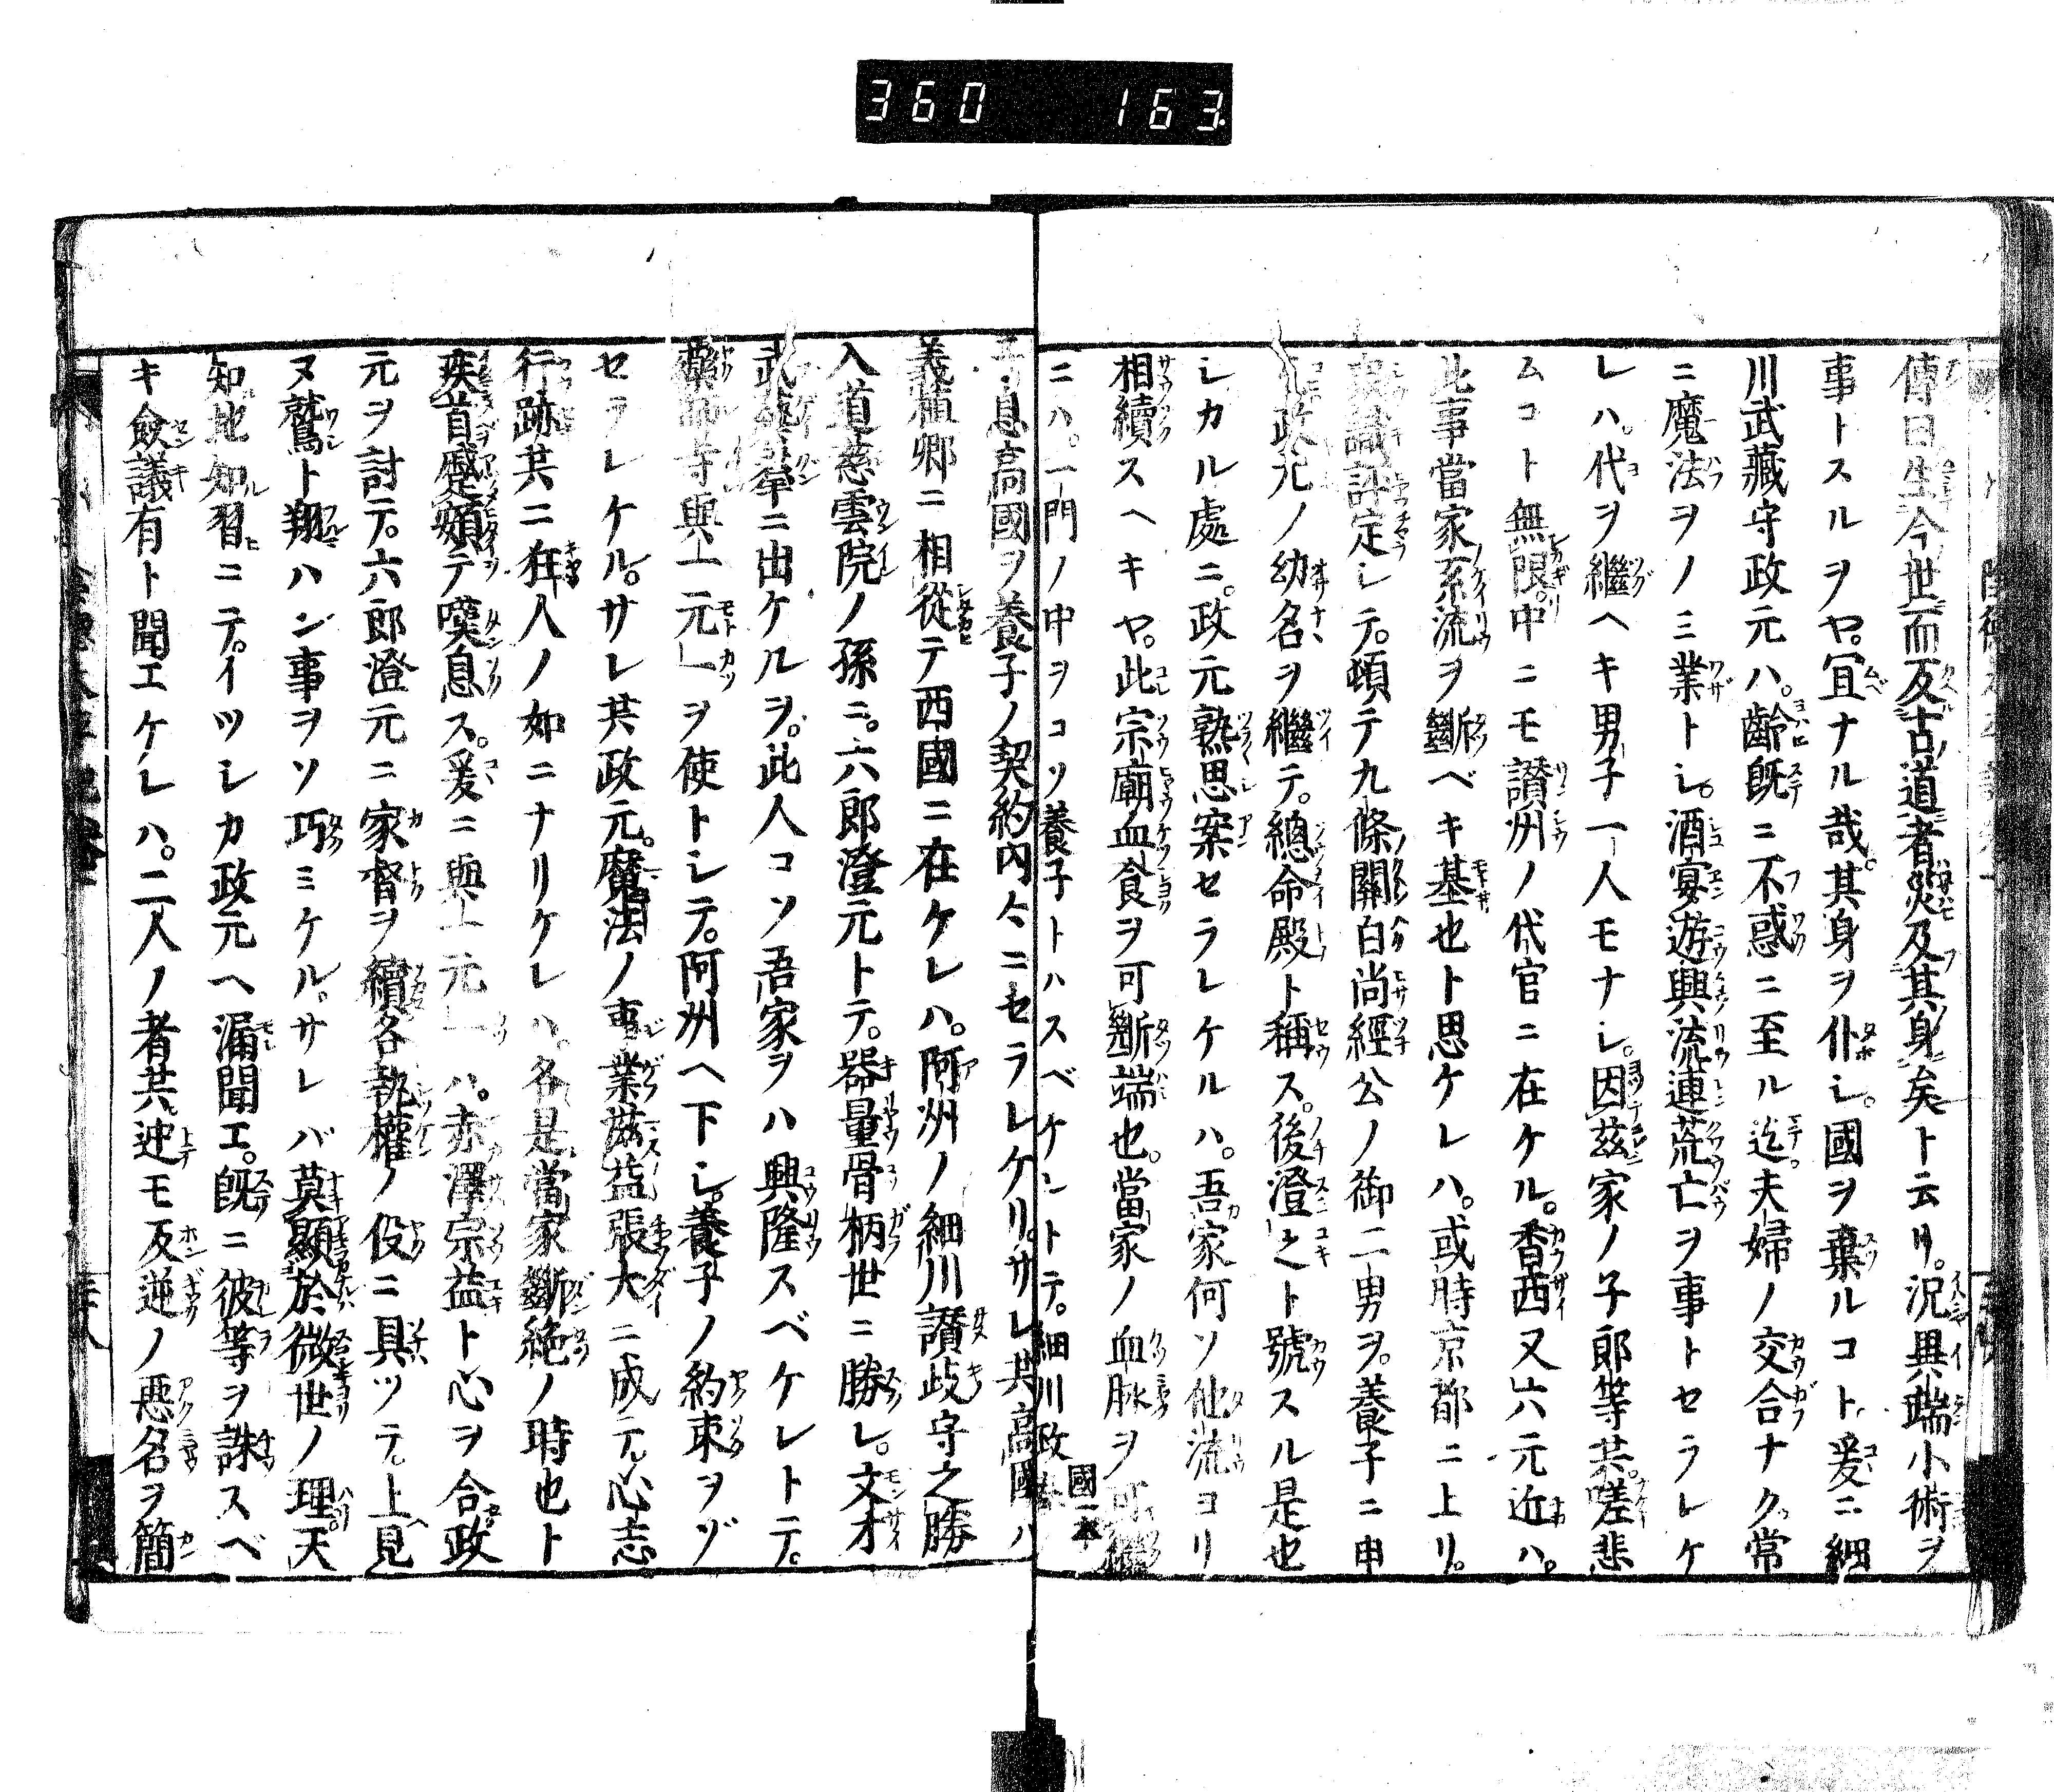 360 163
傳曰生今世而反古道者災及其身矣ト云リ。況異端小術ヲ
事トスルヲヤ。宜ナル哉。其身ヲ仆シ。國ヲ棄ルコト。爰ニ細
川武藏守政元ハ。齡既ニ不惑ニ至ル迄。夫婦ノ交合ナク。常
ニ魔法ヲノミ業トシ。酒宴遊興流連荒亡ヲ事トセラレケ
レハ。代ヲ繼ヘキ男子一人モナシ。因茲家ノ子郎等共。嗟悲
ムコト無限。中ニモ讃州ノ代官ニ在ケル。香西又六元近ハ。
此事當家系流ヲ斷ベキ基也ト思ケレハ。或時京都ニ上リ。
議評定シテ。頓テ九條關白尚經公ノ御二男ヲ。養子ニ申
政元ノ幼名ヲ繼テ。總命殿ト稱ス。後澄之ト號スル是也
シカル處ニ。政元熟思案セラレケルハ。吾家何ソ他流ヨリ
相續スヘキヤ。此宗廟血食ヲ可斷端也。當家ノ血脉ヲ可繼
ニハ。一門ノ中ヲコソ養子トハスベケントテ。細川政
國一本
子息高國ヲ養子ノ契約内々ニセラレケリ。サレ共高國ハ
義稙卿ニ相從テ西國ニ在ケレハ。阿州ノ細川讃岐守之勝
入道慈雲院ノ孫ニ。六郎澄元トテ。器量骨柄世ニ勝レ。文才
武藝羣ニ出ケルヲ。此人コソ吾家ヲハ興隆スベケレトテ。
藥師寺與一元一ヲ使トシテ。阿州ヘ下シ。養子ノ約束ヲゾ
セラレケル。サレ共政元。魔法ノ事業茲益張大ニ成テ。心志
行跡共ニ狂人ノ如ニナリケレハ。各是當家斷絶ノ時也ト
疾首蹙頞テ嘆息ス。爰ニ與一元一ハ。赤澤宗益ト心ヲ合政
元ヲ討テ。六郎澄元ニ家督ヲ續各執權ノ役ニ具ツテ。上見
ヌ鷲ト翔ハン事ヲソ巧ミケル。サレバ莫顯於微世ノ理。天
知地知習ニテ。イツシカ政元ヘ漏聞エ。既ニ彼等ヲ誅スベ
キ僉議有ト聞エケレハ。二人ノ者共迚モ反逆ノ惡名ヲ簡